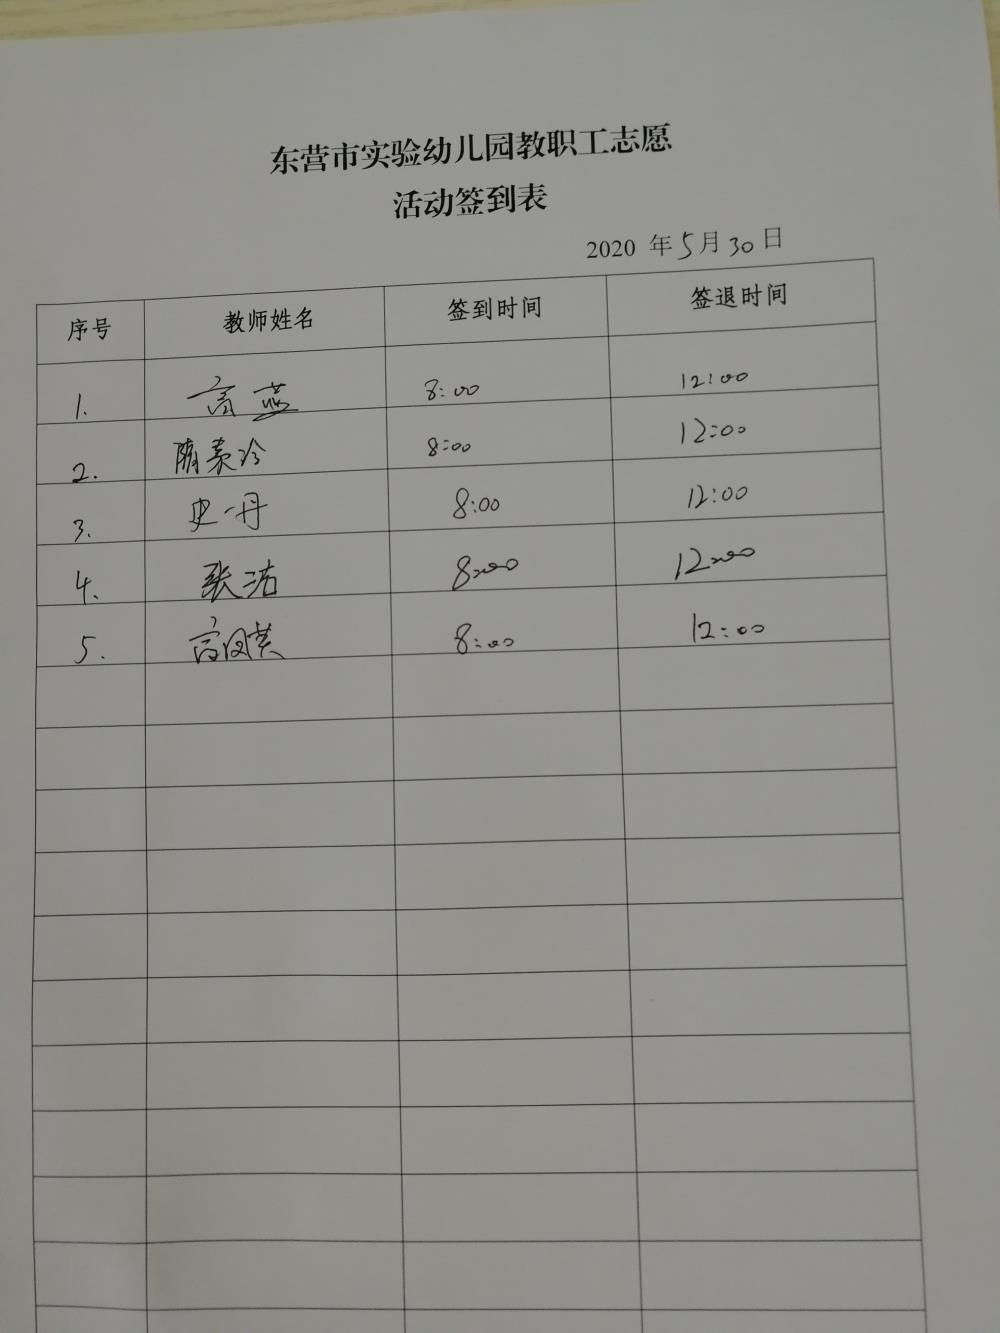 东营市实验幼儿园教职工志愿
活动签到表
2020 年5月30日
序号 教师姓名 签到时间 签退时间
1. 高蓝 8:00 12:00
2. 隋秦玲 8:00 12:00
3. 史一丹 8:00 12:00
4. 张洁 8:00 12:00
5. 高凤英 8:00 12:00